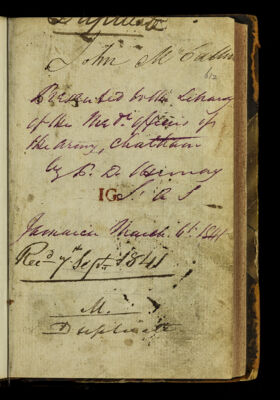 Duplicate
John McCallum
Presented to the Library
of the Med. Officers of
the Army, Chatham
by
IG
S.
Jamaica March 6th 1841
Recd 7th Septr 1841
M.
Duplicate